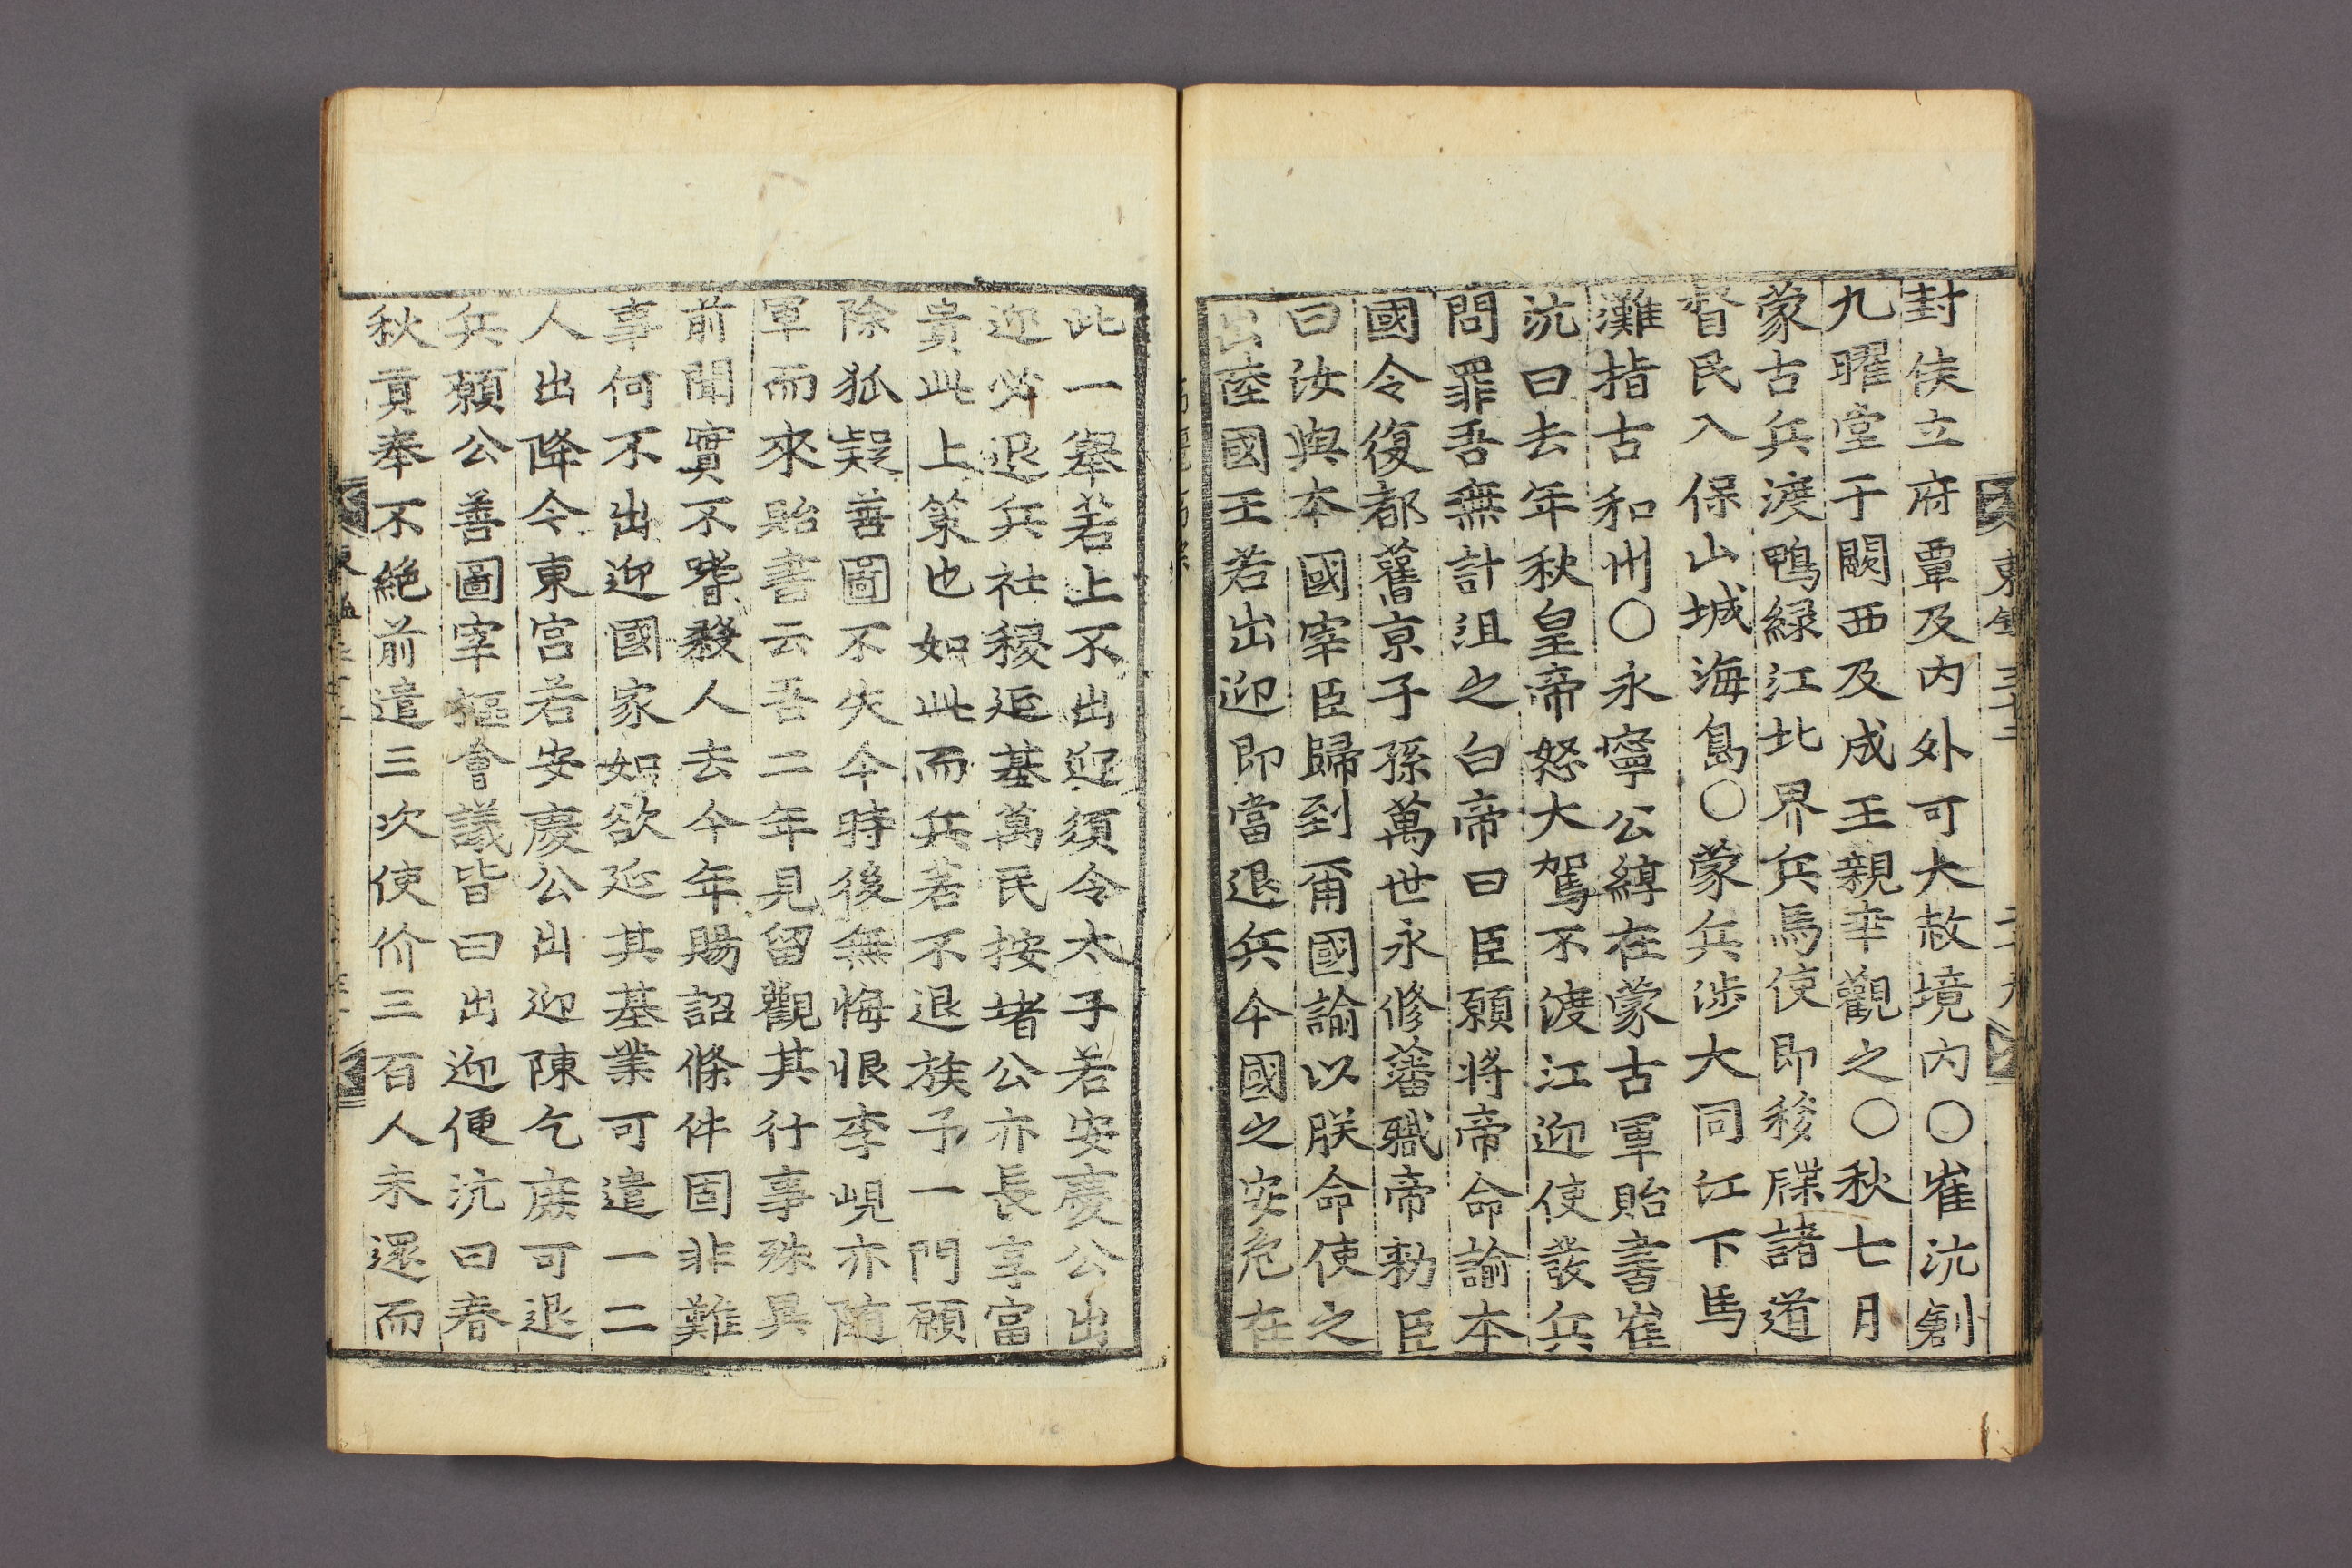 封侯立府覃及内外可大赦境内○崔沆創
九曜堂于闕西及成王親幸觀之○秋七月
蒙古兵渡鴨緑江北界兵馬使即移牒諸道
督民入保山城海島○蒙兵涉大同江下馬
灘指古和州○永寧公綧在蒙古軍貽書崔
沆曰去年秋皇帝怒大駕不渡江迎使發兵
問罪吾無計沮之白帝曰臣願將帝命諭本
國令復都舊京子孫萬世永修蕃職帝勑臣
曰汝與本國宰臣歸到爾國諭以朕命使之
出陸國王若出迎即當退兵今國之安危在
此一舉若上不出迎須令太子若安慶公出
迎必退兵社稷延基萬民按堵公亦長享富
貴此上策也如此而兵若不退族予一門願
除狐疑善圖不失今時後無悔恨李峴亦随
軍而來貽書云吾二年見留觀其行事殊異
前聞實不嗜殺人去今年賜詔條件固非難
事何不出迎國家如欲延其基業可遣一二
人出降令東宫若安慶公出迎陳乞庶可退
兵願公善圖宰樞會議皆曰出迎便沆曰春
秋貢奉不絶前遣三次使价三百人未還而